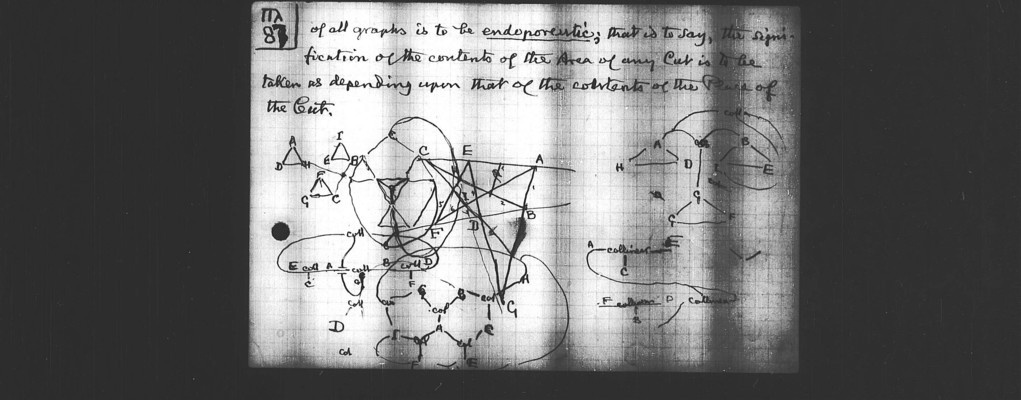 of all graphs is to be endoporeutic; that is to say, the signi-
fication of the contents of the Area of any Cut is to be
taken as depending upon that of the contents of the Place of
the Cut.
A
I
C
C
E
A
D
H
E
B
G
C
B
F
D
H
G
coll
E coll A
coll
B coll D
C
F
coll
D
Col
G
B
col
I
A
C
F
E
A
B
H
D
E
G
G
F
A
collinear
E
C
F
D
collinear
B